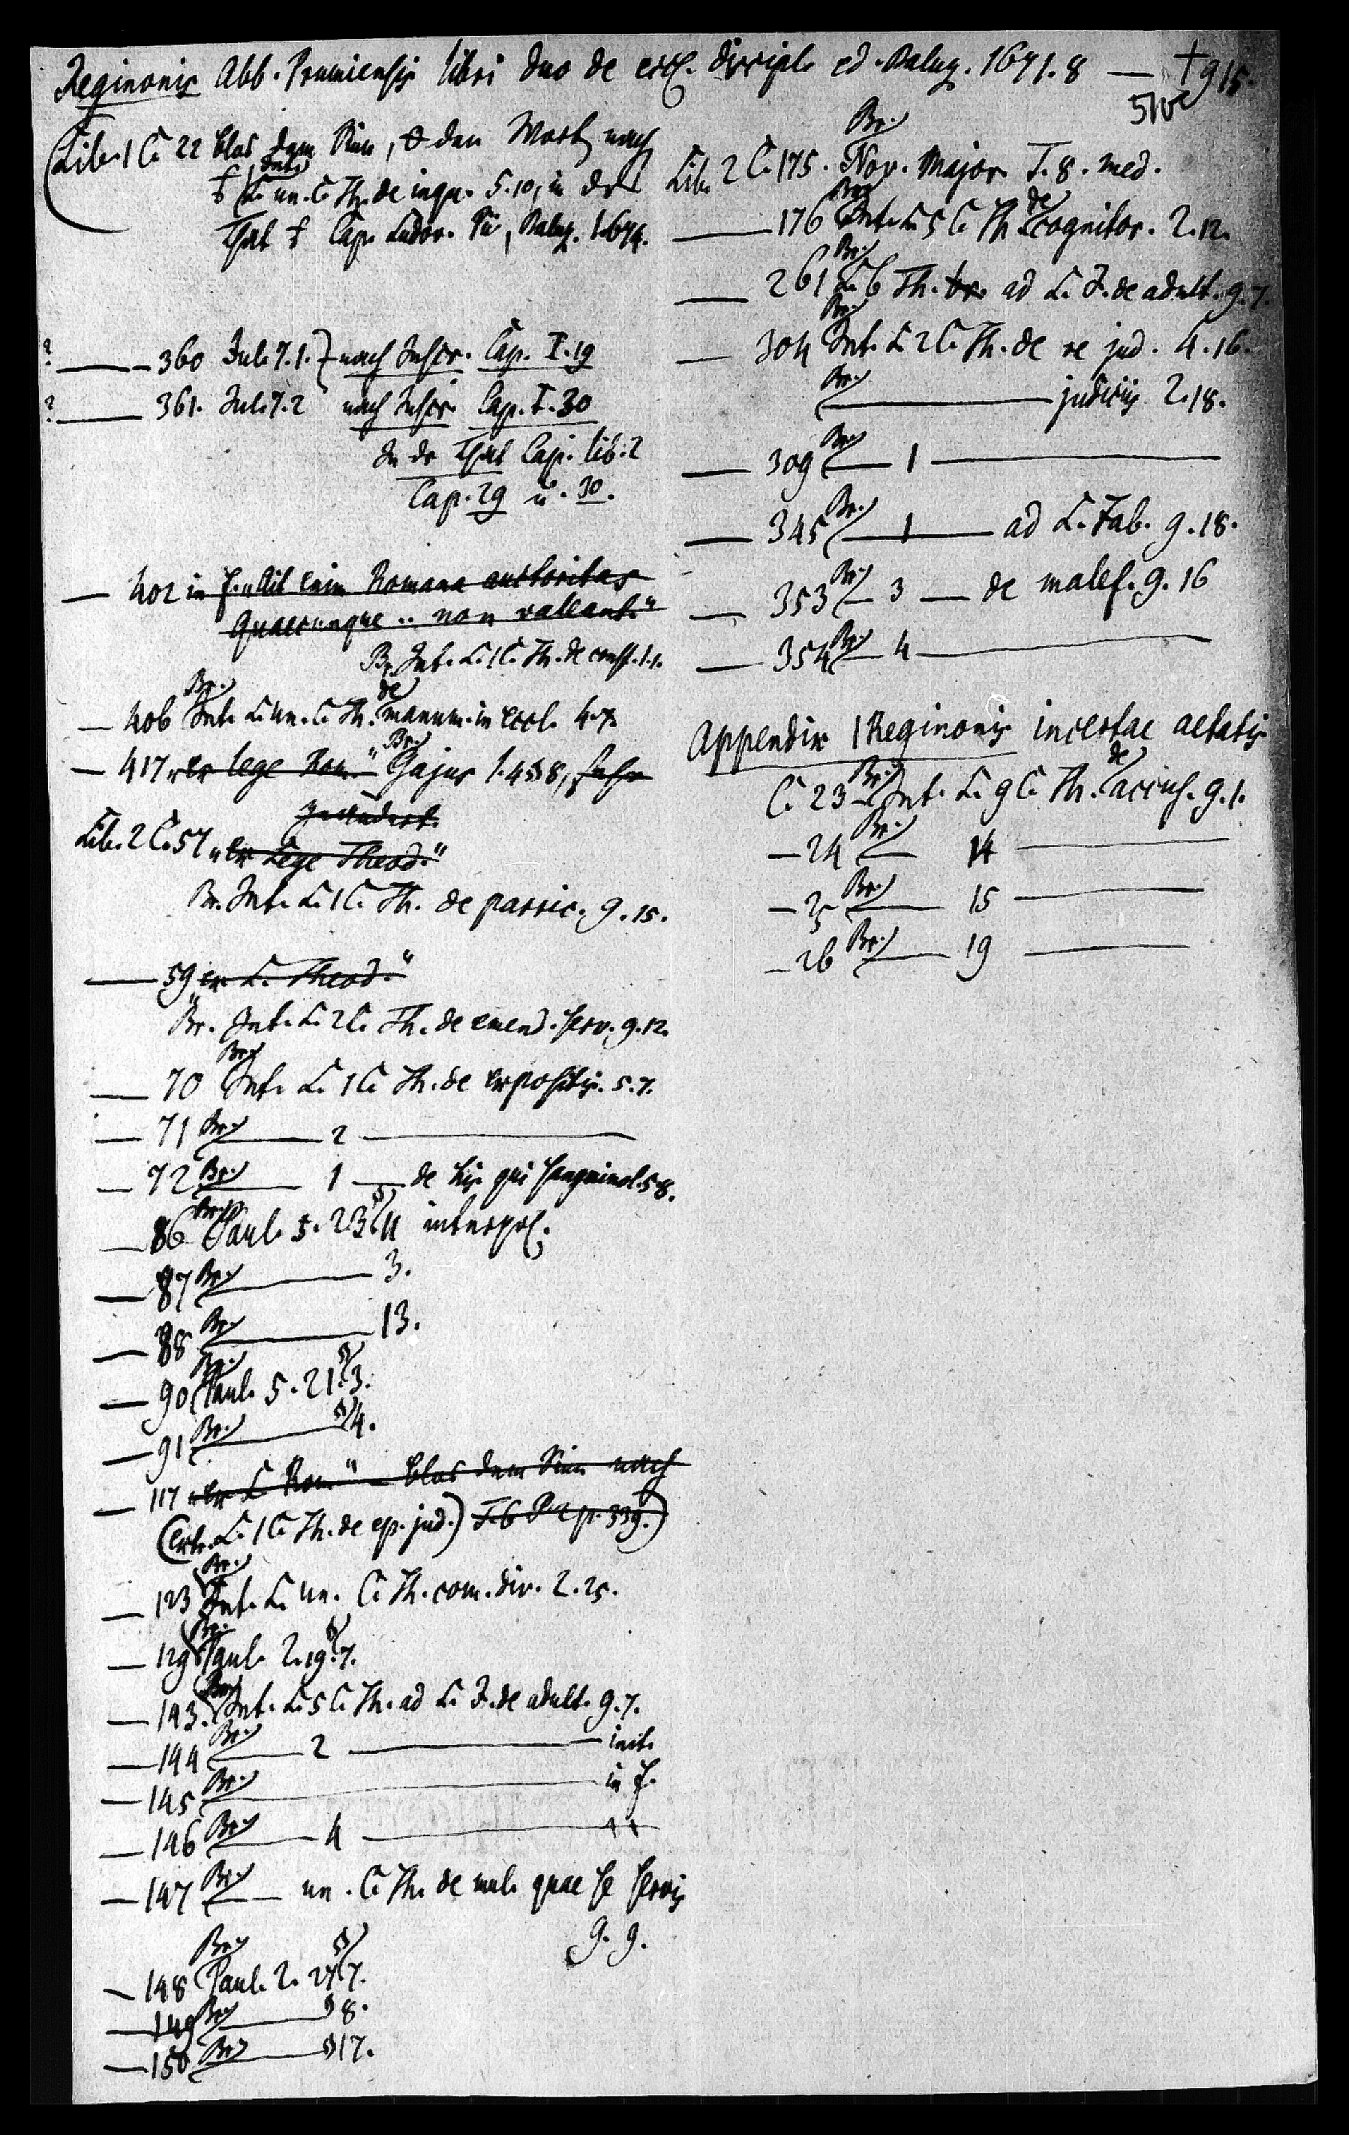 Reginonis Abb. Prumiensis libri duo de eccl. discipl. ed. Baluz. 1671. 8 — † 915.
Lib. 1 C. 22 blos dem Sinn, den Worten nach
Int. L. un. C. Th. de inqu. 5. 10, in der
That Cap. Ludov. Pii, Baluz. 1. 674.
? — 360 Jul. 7. 1. } nach Inscr. Cap. I. 19
? — 361. Jul. 7. 2 nach Inscr. Cap. I. 30
In der That Cap. lib. 2
Cap. 29 u. 30.
— 402 in f. Romana auctoritas
Quaecunque .. non valeant."
Br. Int. L. 1 C. Th. de const. 1. 1.
— 406 Br. Int. L. un. C. Th. de manum. in eccl. 4. 7.
— 417 „ex lege Rom." Br. Gajus 1. 4 § 8,
Lib. 2 C. 57 „ex Lege Theod."
Br. Int. L. 1 C. Th. de parric. 9. 15.
— 59 ex L. Theod."
Br. Int. L. 2 C. Th. de emend. serv. 9. 12.
— 70 Br. Int. L. 1 C. Th. de expositis. 5. 7.
— 71 Br. — 2 —
— 72 Br. — 1 — de his qui sanguinol. 5 8.
— 86 Paul. 5. 23 § 11 interpol.
— 87 Br. — 3.
— 88 Br. — 13.
— 90 Br. Paul. 5. 21. § 3.
— 91 Br. — § 4.
— 117 „ex L. Rom" — blos dem Sinn nach
(Ext. L. 1 C. Th. de ep. jud.) p. 339.)
— 123 Br. Int. L. un. C. Th. com. div. 2. 25.
— 129 Br. Paul. 2. 19. § 7.
— 143. Br. Int. L. 5 C. Th. ad L. J. de adult. 9. 7.
— 144 Br. — 2 — init.
— 145 Br. — in f.
— 146 Br. — 4 —
— 147 Br. — un. C. Th. de mul. quae se servis
9. 9.
— 148 Br. Paul. 2. 27 § 7.
— 149 Br. — § 8.
— 150 Br. — § 17.
Lib. 2 C. 175. Br. Nov. Major. T. 8. med.
— 176 Br. Int. L. 5 C. Th. de cognitor. 2. 12.
— 261 Br. L. 6 Th. ad L. J. de adult. 9. 7.
— 304 Br. Int. L. 2 C. Th. de re jud. 4. 16.
Br. — judiciis 2. 18.
— 309 Br. — 1 —
— 345 Br. — 1 — ad L. Fab. 9. 18.
— 353 Br. — 3 — de malef. 9. 16
— 354 Br. — 4 —
Appendix 1 Reginonis incertae aetatis
C. 23 Br. Int. L. 9 C. Th. de accus. 9. 1.
— 24 Br. — 14 —
— 25 Br. — 15 —
— 26 Br. — 19 —